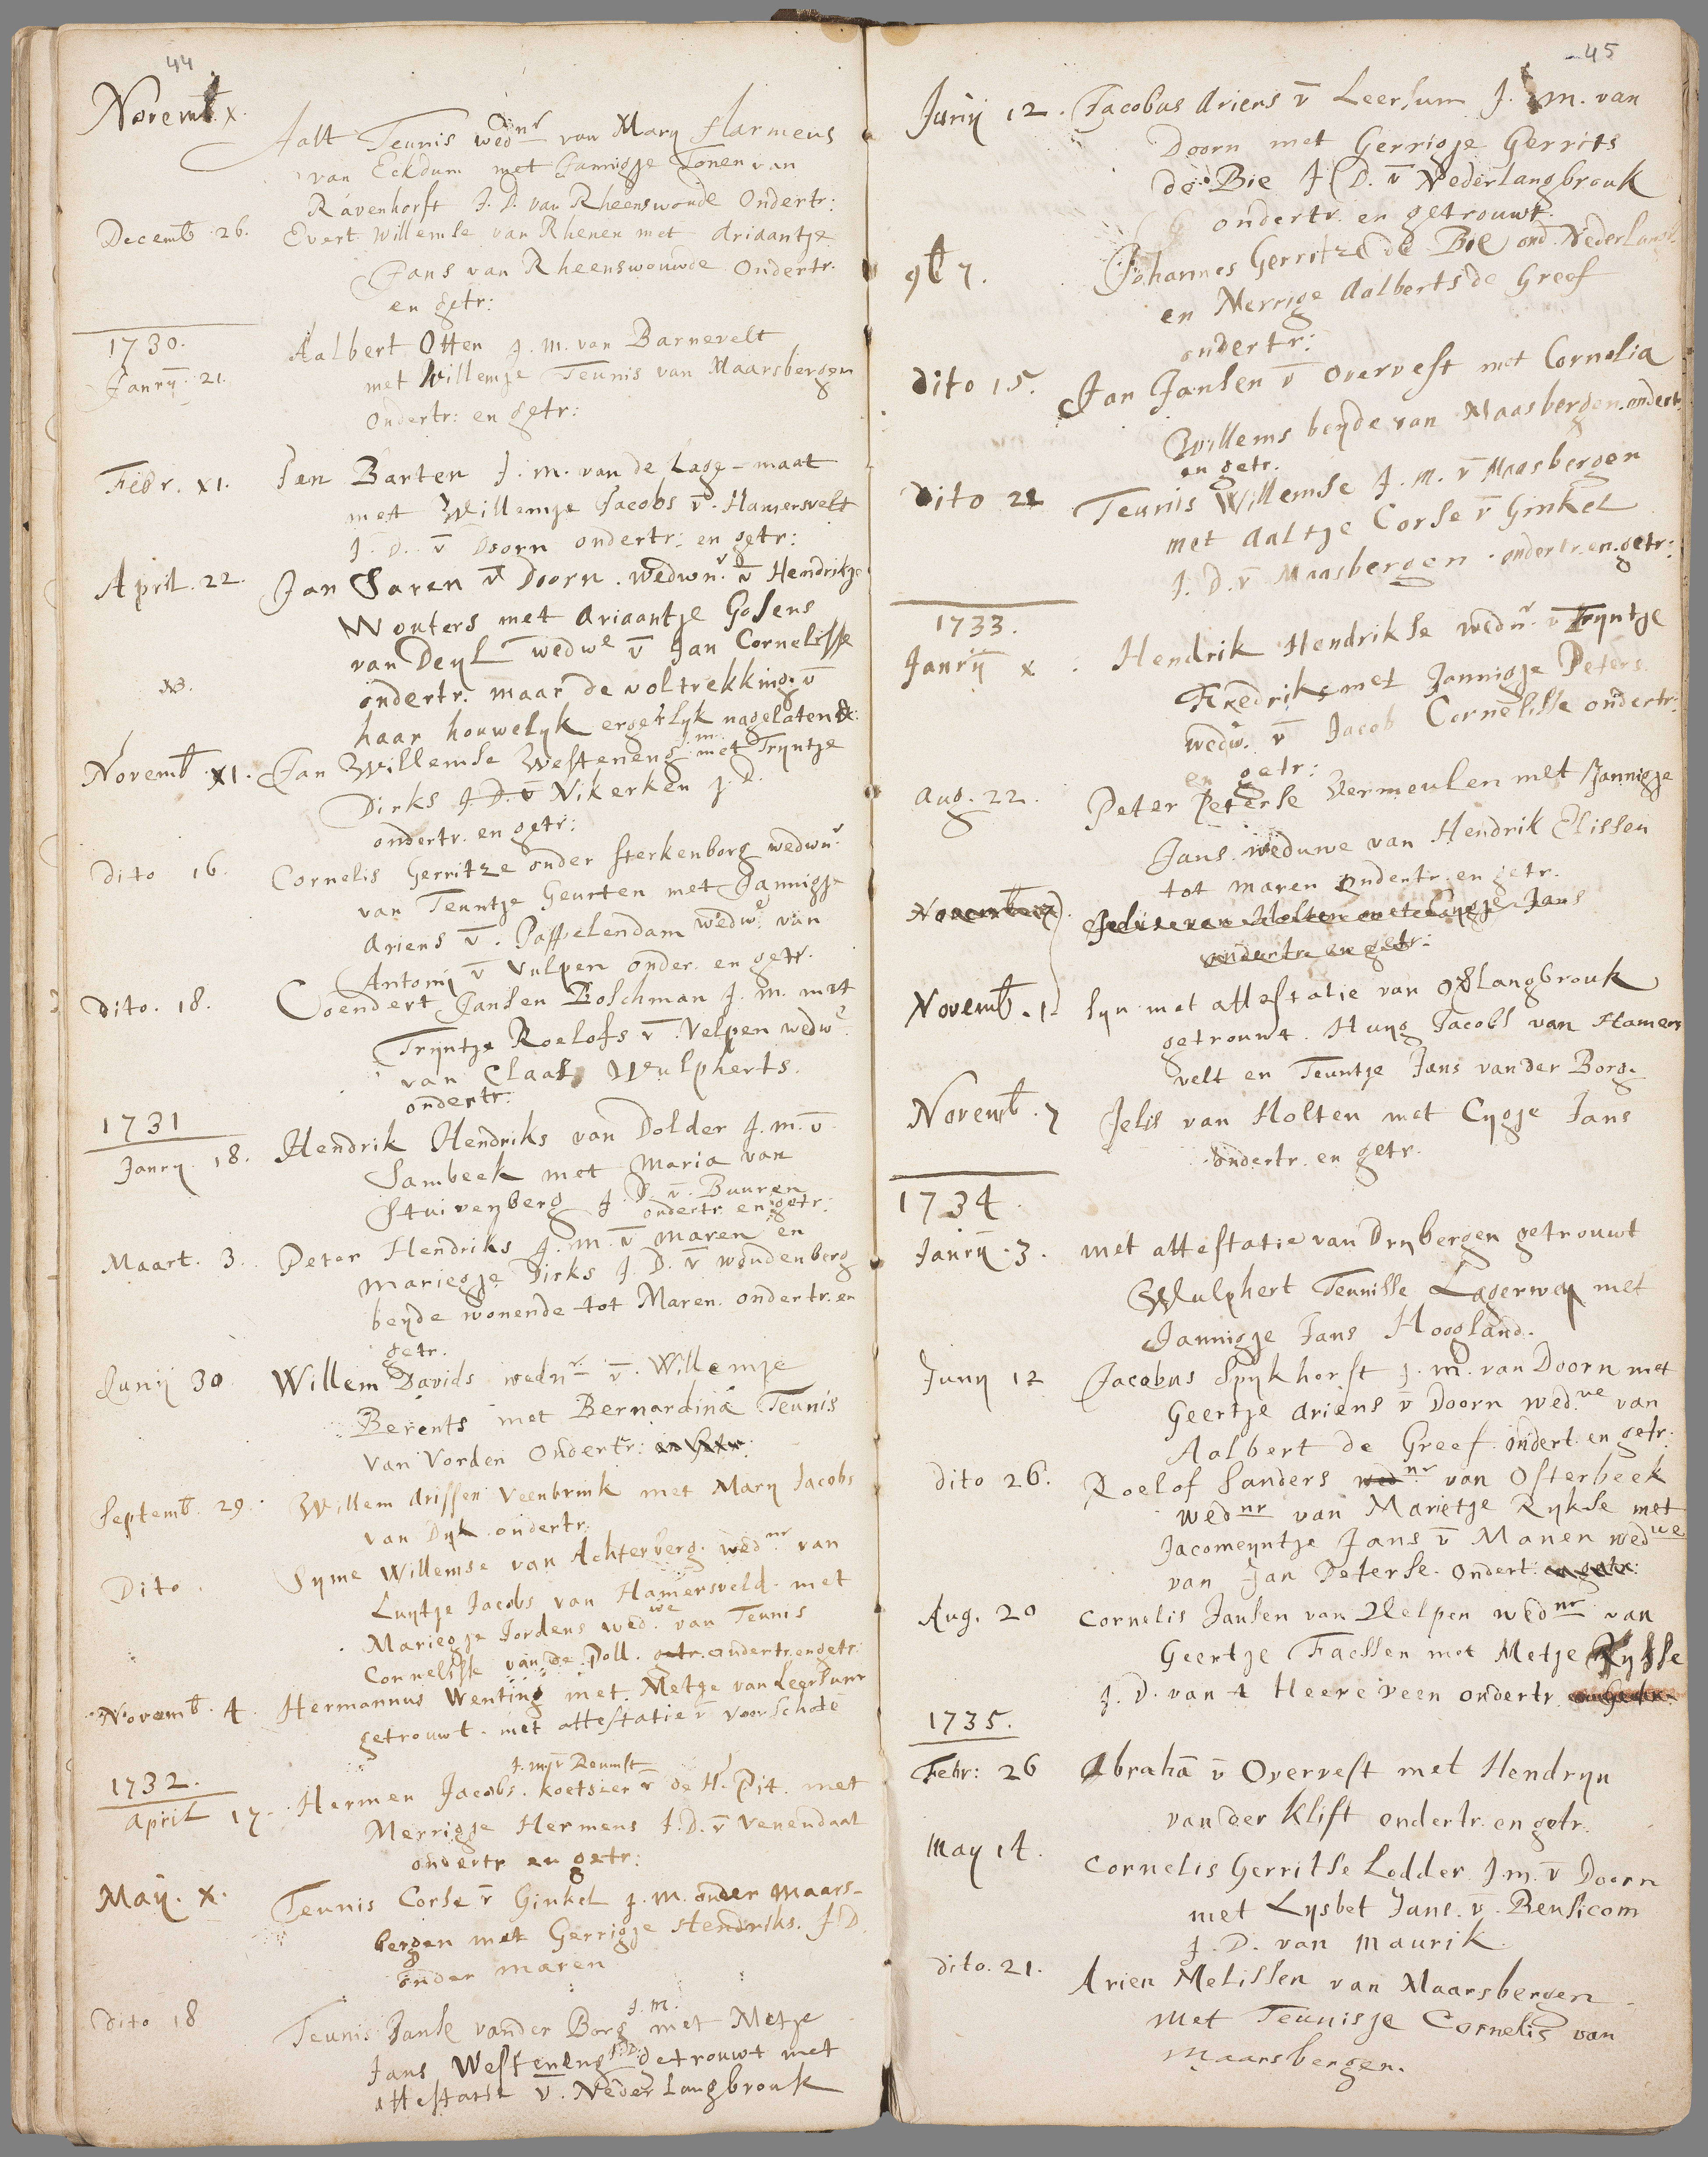 44
Novemb. x.
Aalt Teunis wednr van Mary Harmens
van Eckdum met Jannigje Tonen van
Ravenhorst J. D. van Rheenswoude Ondertr:
Decemb. 26. Evert Willemse van Rhenen met Ariaantje
Jans van Rheenswouwde Ondertr.
en getr:
1730.
Janrÿ. 21. Aalbert Otten J. M. van Barnevelt
met Willemje Teunis van Maarsbergen
Ondertr: en getr:
Febr. XI. Jan Barten J. m. van de Lage-maat
met Willemje Jacobs v̄. Hamersvelt
J. D. v̄ Doorn ondertr: en getr:
April. 22. Jan Saren v̄ Doorn. wedwnr. v̄ Hendrikje
Wouters met Ariaantje Gosens
van Deyl wedwe v̄ Jan Cornelisse
ondertr. maar de voltrekking v̄
haar houwelyk ergetlyk nagelaten
Novemb. XI. Jan Willemse Westeneng j.m. met Tryntje
Dirks J. D. v Nikerken J. D.
ondertr. en getr:
dito 16. Cornelis Gerritze onder sterkenborg wedwnr
van Teuntje Geurten met Jannigje
Ariens v̄. Pappelendam wedwe van
Antony v̄ Vulpen onder. en getr.
dito. 18. Coendert Jansen Boschman J. m. met
Tryntje Roelofs v̄. Velpen wedwe.
van Claas Wulpherts.
ondertr.
1731
Janry. 18. Hendrik Hendriks van Dolder J. m. v̄
Sambeek met Maria van
Stuivenberg J. D. v̄. Buuren
ondertr. en getr:
Maart. 3. Peter Hendriks J. M. v̄ maren en
Mariegje Dirks J. D. v̄ woudenberg
beyde wonende tot Maren. ondertr. en
getr.
Junÿ 30 Willem Davids wednr v̄. Willemje
Berents met Bernardina Teunis
Van Vorden Ondertr: en getr:
Septemb. 29. Willem drissen Veenbrink met Mary Jacobs
van Dyk ondertr.
Dito. Syme Willemse van Achterberg. wednr van
Luytje Jacobs van Hamersveld. met
Mariegje Jordens wedwe. van Teunis
Cornelisse van de Poll. getr. ondertr. en getr:
Novemb. 4. Hermannus Wenting met Metje van Leersum
getrouwt. met attestatie v̄ Voorschote
1732.
J. m. v̄ Reumst
April 17. Hermen Jacobs. koetsier v̄ de H. Pit. met
Merrigje Hermens J. D. v̄ Venendaal
ondertr en getr:
Maÿ. x. Teunis Corse v̄ Ginkel J. m. onder Maars-
bergen met Gerrigje Hendriks. J D.
onder maren
dito 18 Teunis Janse vander Borg J. m. met Metje
Jans Westeneng J. D. getrouwt met
attestatie v̄. Neder Langbrouk
45
Junÿ 12. Jacobus Ariens v̄ Leersum J. m. van
Doorn met Gerrigje Gerrits
de Bie J. D. v̄ Nederlangbrouk
ondertr. en getrouwt.
9b 7. Johannes Gerritze de Bie ond. Nederlangb.
en Merrige Aalberts de Greef
ondertr:
dito 15. Jan Jansen v̄ Overvest met Cornelia
Willems beyde van Maasbergen. ondertr.
en getr.
dito 21 Teunis Willemse J. M. v̄ Maasbergen
met Aaltje Corse v̄ Ginkel
J. D. v̄ Maasbergen. ondertr. en. getr:
1733.
Janrÿ x. Hendrik Hendrikse wednr. v̄ Tryntje
Fredriks met Jannigje Peters
wedw. v̄ Jacob Cornelisse ondertr.
en getr:
Aug. 22. Peter Peterse Vermeulen met Jannigje
Jans weduwe van Hendrik Elissen
tot maren Ondertr. en getr.
November 7. Jelis van Holten met Cygje Jans
ondertr. en getr:
Novemb. 1. Syn met attestatie van Langbrouk
getrouwt. Huyg Jacobs van Hamers
velt en Teuntje Jans vander Borg.
Novemb. 7 Jelis van Holten met Cygje Jans
ondertr. en getr.
1734.
Janrÿ. 3. met attestatie van Drybergen getrouwt
Wulphert Teunisse Lagerwey met
Jannigje Jans Hoogland.
Juny 12 Jacobus Spykhorst J. m. van Doorn met
Geertje Ariens v̄ Doorn wed.ue van
Aalbert de Greef. ondert. en getr.
dito 26. Roelof Sanders wednr van Osterbeek
wednr van Marietje Rykse met
Jacomeyntje Jans v̄ Manen wedwe
van Jan Peterse. Ondert: en getr:
Aug. 20 Cornelis Jansen van Velpen wednr van
Geertje Faessen met Metje Rykse
J. D. van t Heereveen ondertr. en getr.
1735.
Febr: 26 Abrahā v̄ Overvest met Hendryn
vander Klift ondertr. en getr.
May 14. Cornelis Gerritse Lodder J. m. v̄ Doorn
met Lysbet Jans. v̄. Beusicom
J. D. van Maurik.
dito. 21. Arien Melissen van Maarsbergen
met Teunisje Cornelis van
Maarsbergen.